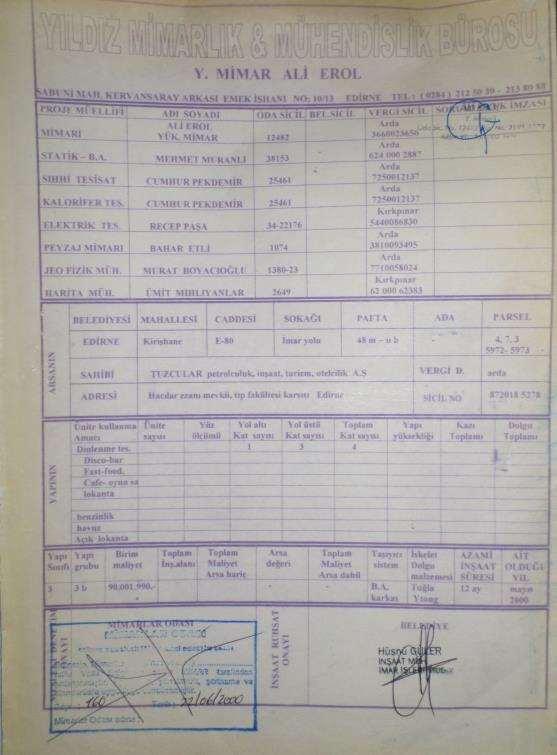 YILDIZ MİMARLIK & MÜHENDİSLİK BÜROSU
Y. MİMAR ALİ EROL
SABUNİ MAH. KERVANSARAY ARKASI EMEK İŞHANI NO: 10/13 EDİRNE TEL : ( 0284 ) 212 50 39 - 213 80 88
PROJE MÜELLİFİ ADI SOYADI ODA SİCİL BEL.SİCİL VERGİ SİCİL
MİMARI ALİ EROL YÜK. MİMAR 12482 Arda 3660023650
STATİK – B.A. MEHMET MURANLI 38153 Arda 624 000 2887
SIHHİ TESİSAT CUMHUR PEKDEMİR 25461 Arda 7250012137
KALORİFER TES. CUMHUR PEKDEMİR 25461 Arda 7250012137
ELEKTRİK TES. RECEP PAŞA 34-22176 Kırkpınar 5440086830
PEYZAJ MİMARI BAHAR ETLİ 1074 Arda 3810093495
JEO FİZİK MÜH. MURAT BOYACIOĞLU 1380-23 Arda 7710058024
HARİTA MÜH. ÜMİT MIHLIYANLAR 2649 Kırkpınar 62 000 62383
ARSANIN
BELEDİYESİ MAHALLESİ CADDESİ SOKAĞI PAFTA ADA PARSEL
EDİRNE Kirişhane E-80 İmar yolu 48 m – n b 4, 7, 3
5972- 5973
SAHİBİ TUZCULAR petrolculuk, inşaat, turizm, otelcilik A.Ş VERGİ D. arda
ADRESİ Hacılar ezanı mevkii, tıp fakültesi karşısı Edirne SİCİL NO 872018 5278
YAPININ
Ünite kullanma Amacı Ünite sayısı Yüz ölçümü Yol altı Kat sayısı Yol üstü Kat sayısı Toplam Kat sayısı Yapı yüksekliği Kazı Toplamı Dolgu Toplamı
Dinlenme tes. 1 3 4
Disco-bar
Fast-food.
Cafe- oyun sa
lokanta
benzinlik
havuz
Açık lokanta
Yapı Sınıfı Yapı grubu Birim maliyet Toplam İnş.alanı Toplam Maliyet Arsa hariç Arsa değeri Toplam Maliyet Arsa dahil Taşıyıcı sistem İskelet Dolgu malzemesi AZAMİ İNŞAAT SÜRESİ AİT OLDUĞU YIL
3 3 b 90,001,990.- B.A. karkas Tuğla Ytong 12 ay mayıs 2000
MESLEKİ DENETİM ONAYI
MİMARLAR ODASI
160
22/06/2000
İNŞAAT RUHSAT ONAYI
BELEDİYE
Hüsnü GÜLER
İNŞAAT MÜH.